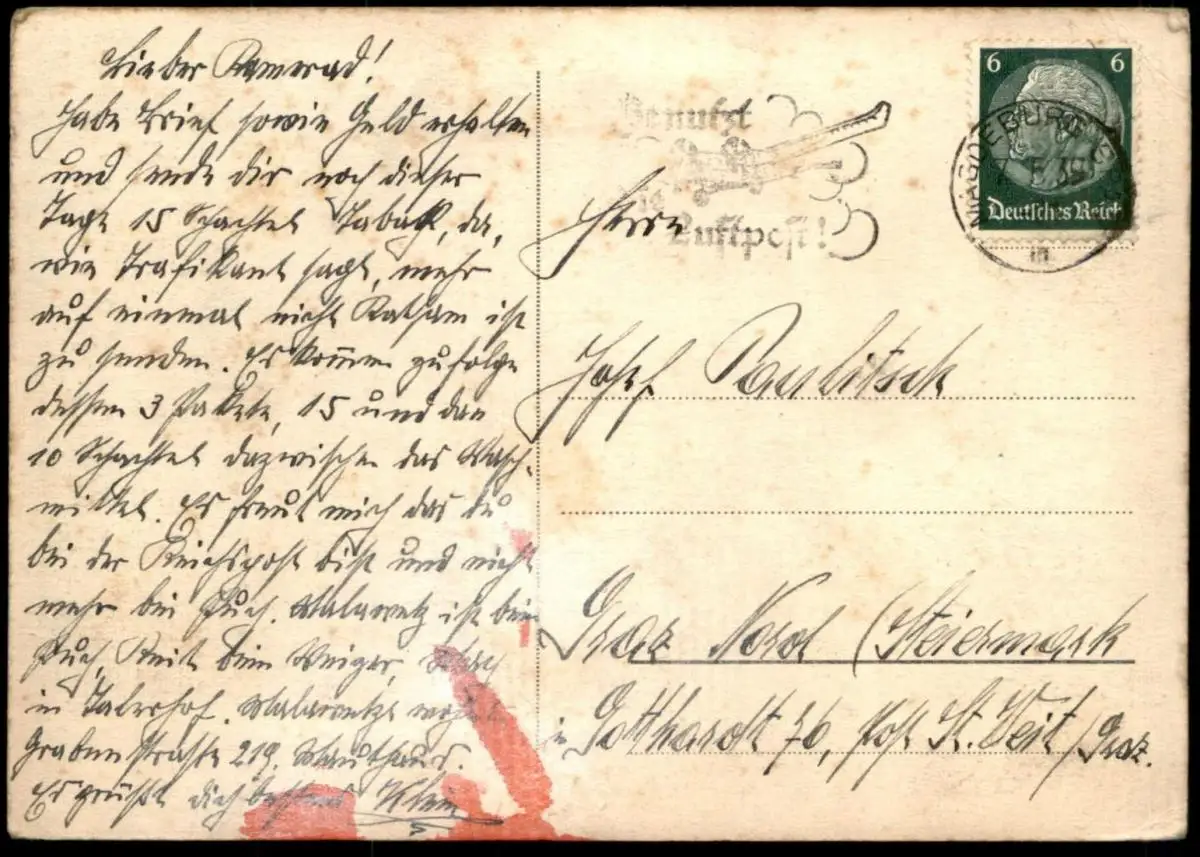 Lieber Kamerad!
Habe Brief sowie Geld erhalten
und sende dir noch dieser
Tage 15 Schachtel Taback, da,
wie Trafikant sagt, mehr
auf einmal nicht Ratsam ist
zu senden. Es komen zufolge
dessen 3 Pakete, 15 und dan
10 Schachtel dazwischen das Wasch-
mittel. Es freut mich das du
bei der Reichspost bist und nicht
mehr bei Puch. Malawetz ist beim
Puch, Reit beim Weiger,
in Talerhof. Malawetz
Grabenstrasse 219.
Es grüßt dich bestens Klein
Benutzt
die
Luftpost!
6 6
Deutsches Reich
MAGDEBURG
Herrn
Josef Paulitsch
Graz Nord (Steiermark
in Gotthardt 76, Post St. Veit / Graz.